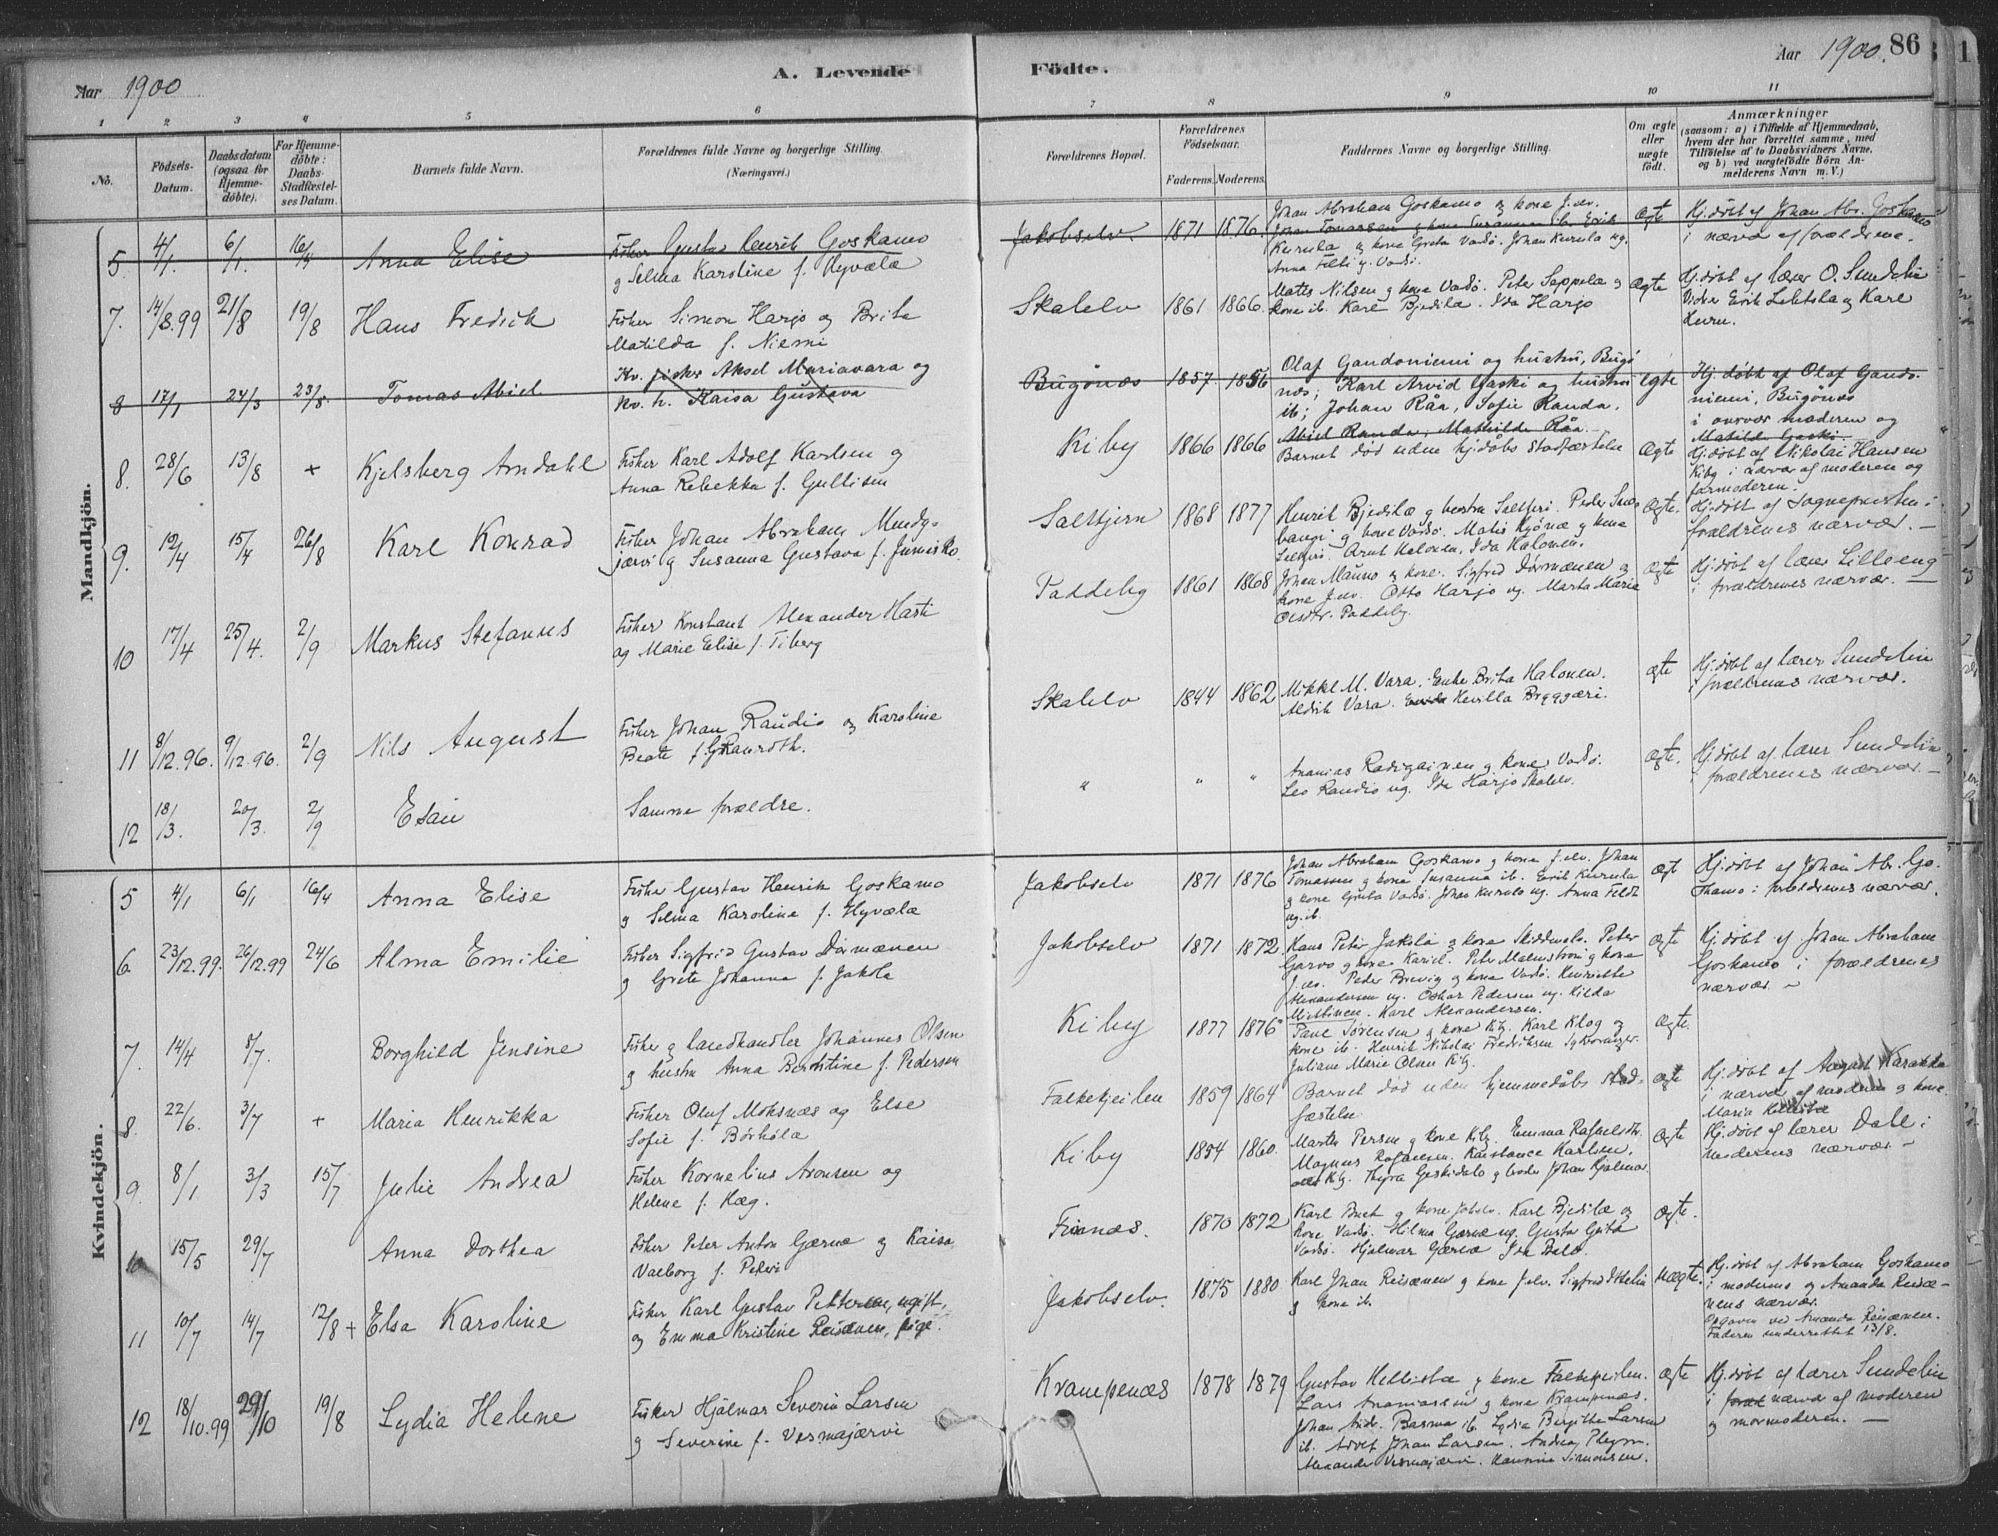 Aar 1900
A. Levende
Födte.
Aar 1900.
86
1 2 3 4 5 6 7 8 9 10 11
No.
Födsels-
Datum.
Daabsdatum
(ogsaa for
Hjemme-
døbte).
For Hjemme-
døbte:
Daabs-
Stadfæstel-
ses Datum.
Barnets fulde Navn.
Forældrenes fulde Navne og borgerlige Stilling.
(Næringsvei.)
Forældrenes Bopæl.
Forældrenes
Födselsaar.
Faderens. Moderens.
Faddernes Navne og borgerlige Stilling.
Om ægte
eller
uægte
födt.
Anmærkninger
(saasom: a) i Tilfælde af Hjemmedaab,
hvem der har forrettet samme, med
Tilföielse af to Daabsvidners Navne,
og b) ved uægtefödte Börn An-
melderens Navn m. V.)
Mandkjön.
5. 4/1. 6/1. 16/4 Anna Elise
Fisker Gustav Henrik Goskamo
g Selma Karoline f. Hyvælæ
Jakobselv. 1871 1876.
Johan Abraham Goskamo g kone J.elv.
Johan Tomassen g kone Susanna ib. Erik
Kurula g kone Greta Vadsö. Johan Kurula ug.
Anna Feldt g. Vadsö.
Ægte
Hj.döbt af Johan Abr. Goskamo
i nærv af forældrene.
7. 14/8.99 21/8 19/8 Hans Fredrik
Fisker Simon Harjo og Brita
Matilda f. Niemi
Skalelv 1861 1866.
Matts Nilsen g kone Vadsö. Peter Seppelæ g
kone ib. Karl Bjedilæ. Ida Harjo
Ægte
Hj.döbt af lærer O. Sundelin
Vidner Erik Lehtola og Karl
Kuru.
8 17/1 24/3 23/8. Tomas Abiel
Kv. fisker Aksel Mariavara og
kv. h. Kaisa Gustava
Bugönæs 1857. 1856
Olaf Gandoniemi og hustru, Bugö
næs; Karl Arvid Gaski og hustru
ib; Johan Råa, Sofie Randa,
Abiel Randa, Mathilde Råa.
ægte
Hj. döbt af Olaf Gando-
niemi, Bugönæs
i overvær moderen og
Matilde Gaski.
8. 28/6 13/8 + Kjelsberg Arndahl
Fisker Karl Adolf Karlsen og
Anna Rebekka f. Gullisen
Kiby 1866 1866
Barnet död uden hj.döbs stadfæstelse
Ægte
Hj.döbt af Nikolai Hansen
Kiby i nærvær af moderen og
farmoderen.
9. 12/4 15/4 26/8 Karl Konrad
Fisker Johan Abraham Mendy-
jærvi g Susanna Gustava f. Junisko.
Saltjern 1868 1877
Henrik Bjedilæ g hustru
g kone Vadsö. g kone
Arnt Halonen, Ida Halonen.
Ægte.
Hj.döbt af Sognepresten i
forældrenes nærvær. —
10 17/4 25/4. 2/9 Markus Stefanus
Fisker Konstant Alexander Hasti
og Marie Elise f. Fiberg
Paddeby 1861 1868
Johan Mauno g kone. Sigfred Dörmænen g
kone J.elv. Otto Harjo ug. Marta Marie
Olsdtr. Paddeby.
Ægte
Hj.döbt af lærer Lilleeng
i forældrenes nærvær. —
11 8/12.96. 9/12.96. 2/9 Nils August
Fisker Johan Raudio og Karoline
Beate f. Granroth.
Skalelv 1844 1862
Mikkel M. Vara. Enke Brita Halonen.
Aldrik Vara.
Ægte
Hj.döbt af lærer Sundelin
i forældrenes nærvær.
12 18/3. 20/3. 2/9 Esau
Samme forældre.
" " "
Ananias Radigainen g kone Vadsö.
Leo Raudio ug. Ida Harjo Skalelv.
Ægte.
Hj.döbt af lærer Sundelin
i forældrenes nærvær. —
Kvindekjön.
5 4/1 6/1 16/4 Anna Elise
Fisker Gustav Henrik Goskamo
g Selma Karoline f. Hyvælæ
Jakobselv 1871 1876
Johan Abraham Goskamo g kone J.elv. Johan
Tomassen g kone Susanna ib. Erik Kurula
g kone Greta Vadsö. Johan Kurula ug. Anna Feldt
ug. ib.
Ægt
Hj.döbt af Johan Abr. Go-
skamo i forældrenes nærvær.
6. 23/12.99. 26/12.99 24/6 Alma Emilie
Fisker Sigfrid Gustav Dörmænen
g Grete Johanna f. Jakola
Jakobselv 1871 1872.
Hans Peter Jakola g kone Skiddnelv. Peter
Garvo g kone Kariel. Peter Malmström g kone
J.elv. Peder Brevig g kone Vadsö. Henriette
Alexandersen ug. Oskar Pedersen ug. Hilda
Miettinen. Karl Alexandersen.
Ægte
Hj.döbt af Johan Abraham
Goskamo i forældrenes
nærvær. —
7. 14/4 8/7. Borghild Jensine
Fisker g Landhandler Johannes Olsen
g hustru Anna Berntine f. Pedersen
Kiby 1877 1876
Paul Sörensen g kone Kiby. Karl Klog g
kone ib. Henrik Nikolai Fredriksen
Juliane Marie Olsen Kiby
Ægte.
8. 22/6. 3/7 + Maria Henrikka
Fisker Oluf Moksnæs og Else
Sofie f. Börhöla
Falkekjeilen 1859 1864
Barnet död uden hjemmedåbs stad-
fæstelse
Ægte
Hj.döbt af August Karakka
i nærvær af moderen g kone
Maria
9. 8/1 3/3 15/7 Julie Andrea
Fisker Kornelius Aronsen og
Helene f. Hæg.
Kiby 1854 1860.
Martin Persen g kone Kiby. Emma Rafaelsdtr.
Magnus Rafaelsen. Konstance Karlsen.
Kiby. Thyra Geskidelo g broder Johan Hjalmar
Ægte
Hj.döbt af lærer Dahl i
moderens nærvær —
10 15/5 29/7 Anna Dorthea
Fisker Peter Anton Gærnæ og Kaisa
Valborg f. Peteri
Finnæs. 1870 1872
Karl Buet g kone Jakelv. Karl Bjedilæ og
kone Vadsö. Hilma Gærnæ ug. Gustav
Vadsö. Hjalmar Gærnæ Ida
Ægte.
11 10/7 14/7 12/8 + Elsa Karoline
Fisker Karl Gustav Pettersen, ugift,
og Emma Kristine Reisænen, pige.
Jakobselv. 1875 1880
Karl Johan Reisænen g kone J.elv. Sigfred Ittelin
g kone ib.
Uægte.
Hj.döbt af Abraham Goskamo
i moderens og Amanda Reisæ-
nens nærvær.
Opgaven ved Amanda Reisænen.
Faderen underrettet 13/8.
12 18/10.99 29/10 19/8 Lydia Helene
Fisker Hjalmar Severin Larsen
g Severine f. Vesmajærvi
Krampenæs 1878 1879
Gustav Hellistæ g kone Falkekjeilen.
Lars Ananiassen g kone Krampenæs.
Johan And. Basma ib. Lydia Birgitte Larsen
ib. Advet Johan Larsen. Andreas Plezm.
Alexander Vesmajærvi. Hannine Simonsen.
Ægte
Hj.döbt af lærer Sundelin
i nærvær af moderen
g mormoderen. —